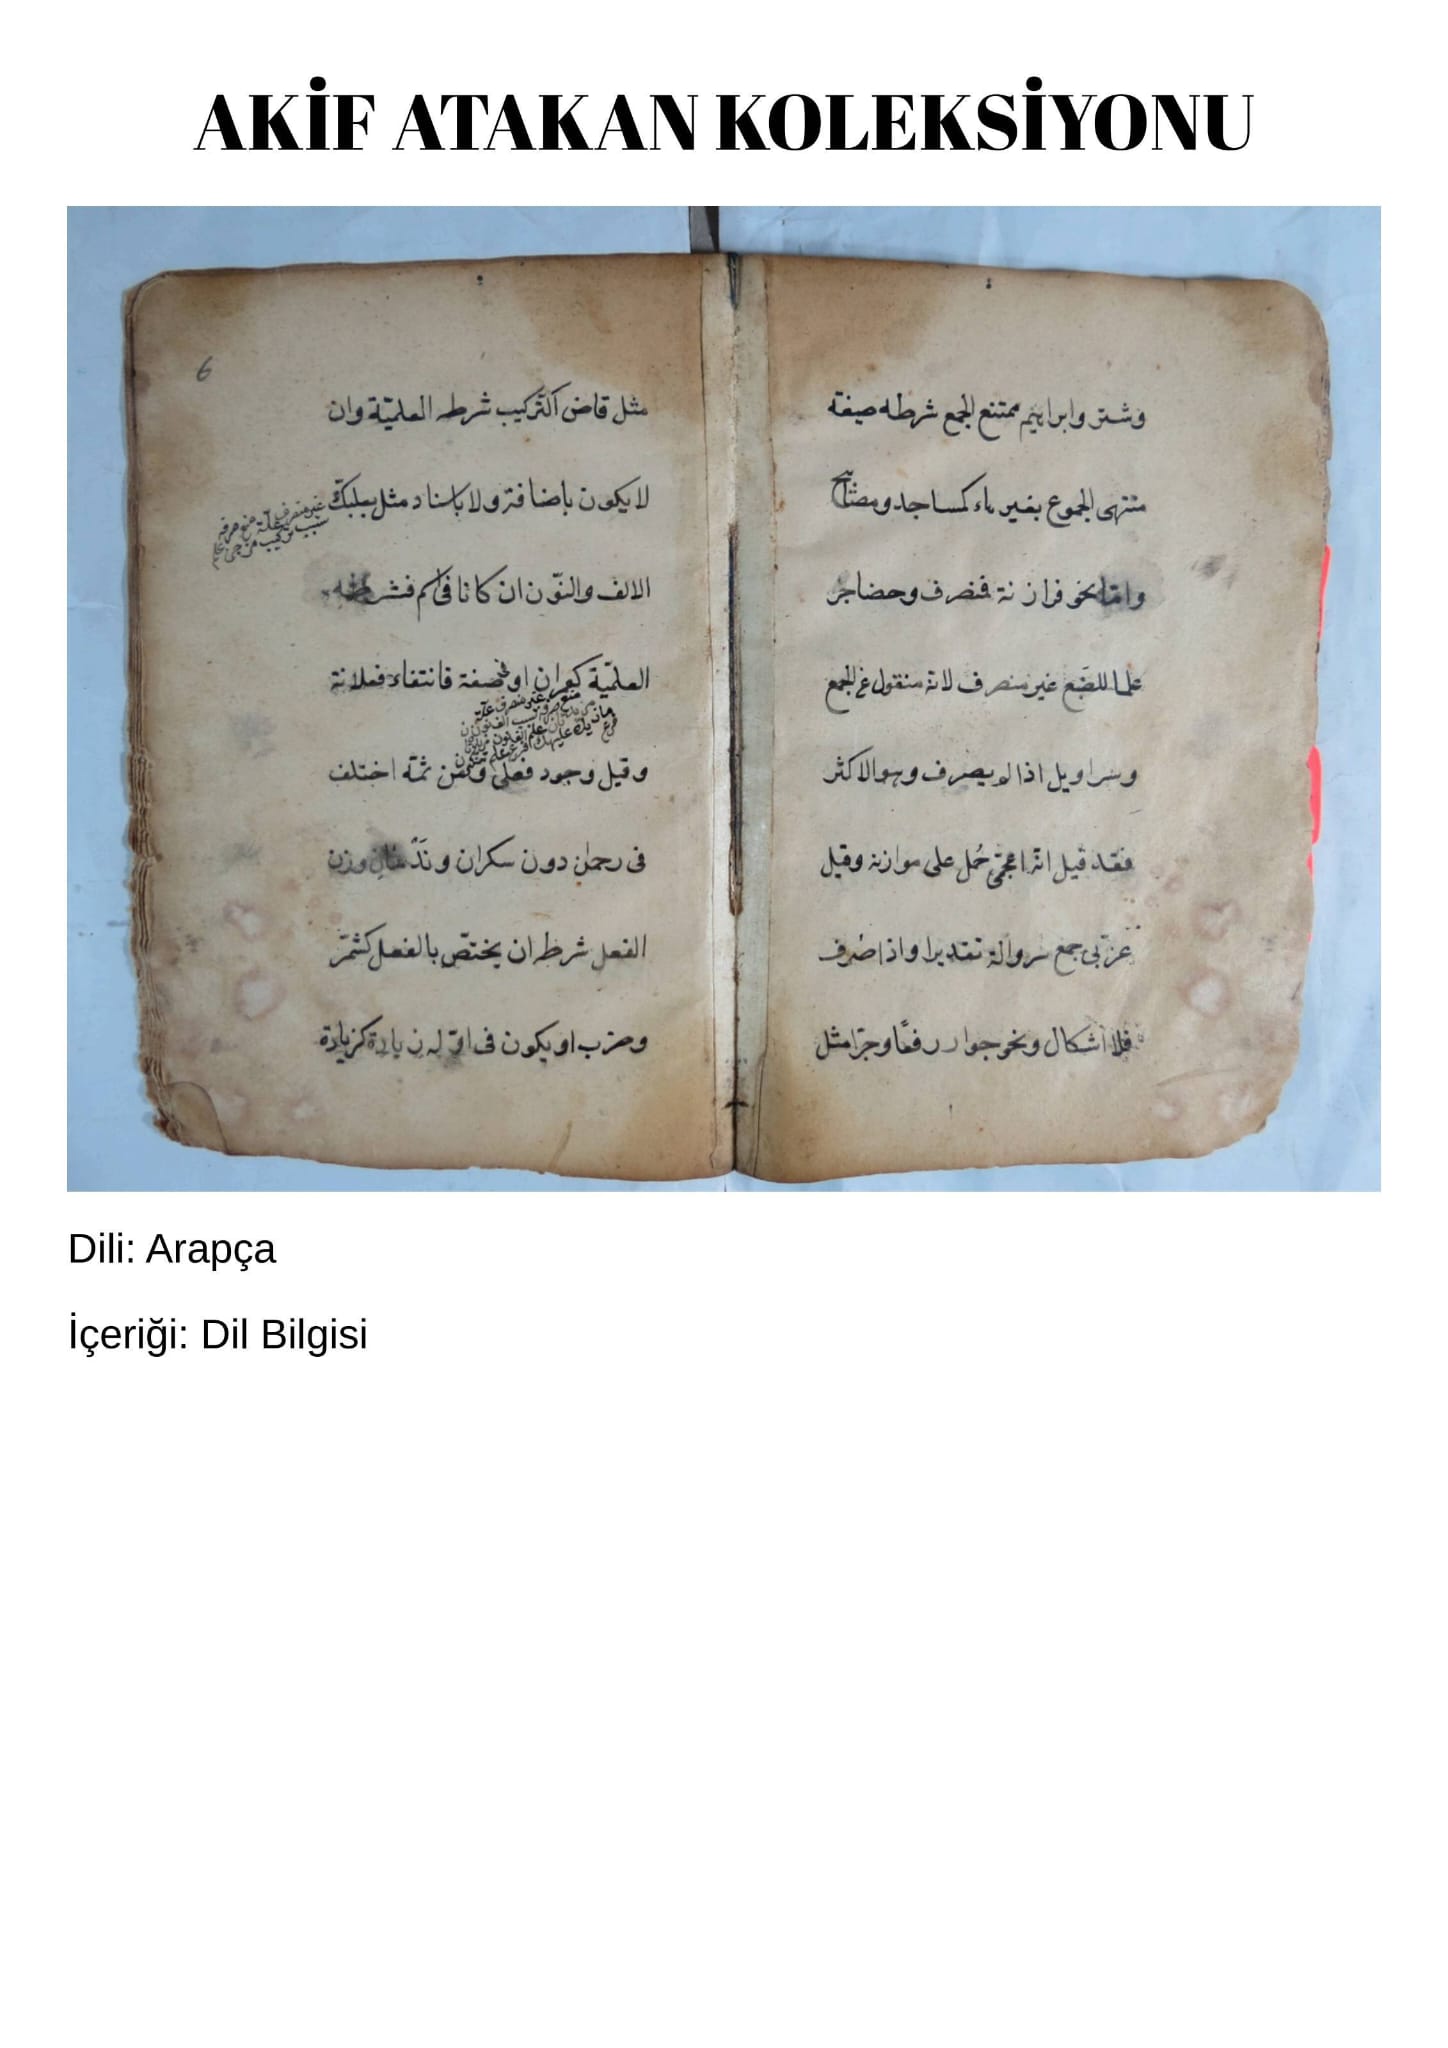 AKİF ATAKAN KOLEKSİYONU
وشتر وابراهيم ممتنع الجمع شرطه صيغة
منتهى الجموع بغير هاء كمساجد ومصابيح
واما نحو فرازنة فمنصرف وحضاجر
علما للضبع غير منصرف لانه منقول عن الجمع
وسراويل اذا لم يصرف وهو الاكثر
فقد قيل انّه اعجمّى حُمل على موازنه وقيل
عربّى جمع سروالة تقديرا واذا صُرف
فلا اشكال ونحو جوار رفعًا وجرّا مثل
6
مثل قاض التّركيب شرطه العلميّة وان
لا يكون باضافة ولا باسناد مثل بعلبكّ
غير منصرف علّة منع صرفه
سبب تركيب مزجى علم
الالف والنّون ان كانا فى اسم فشرطه
العلميّة كعمران او فى صفة فانتفاء فعلانة
وقيل وجود فعلى ومن ثمّه اختلف
فى رحمان دون سكران وندْمان وزن
الفعل شرط ان يختصّ بالفعل كشمّر
وضرب او يكون فى اوّله زيادة كزيادة
Dili: Arapça
İçeriği: Dil Bilgisi